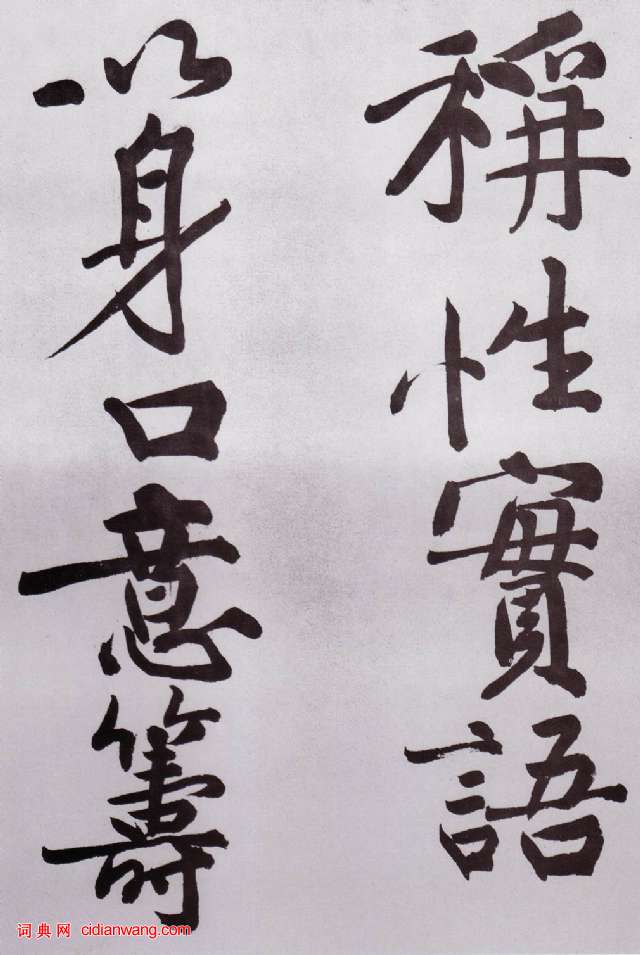 稱性實語
以身口意籌
词典网 cidianwang.com